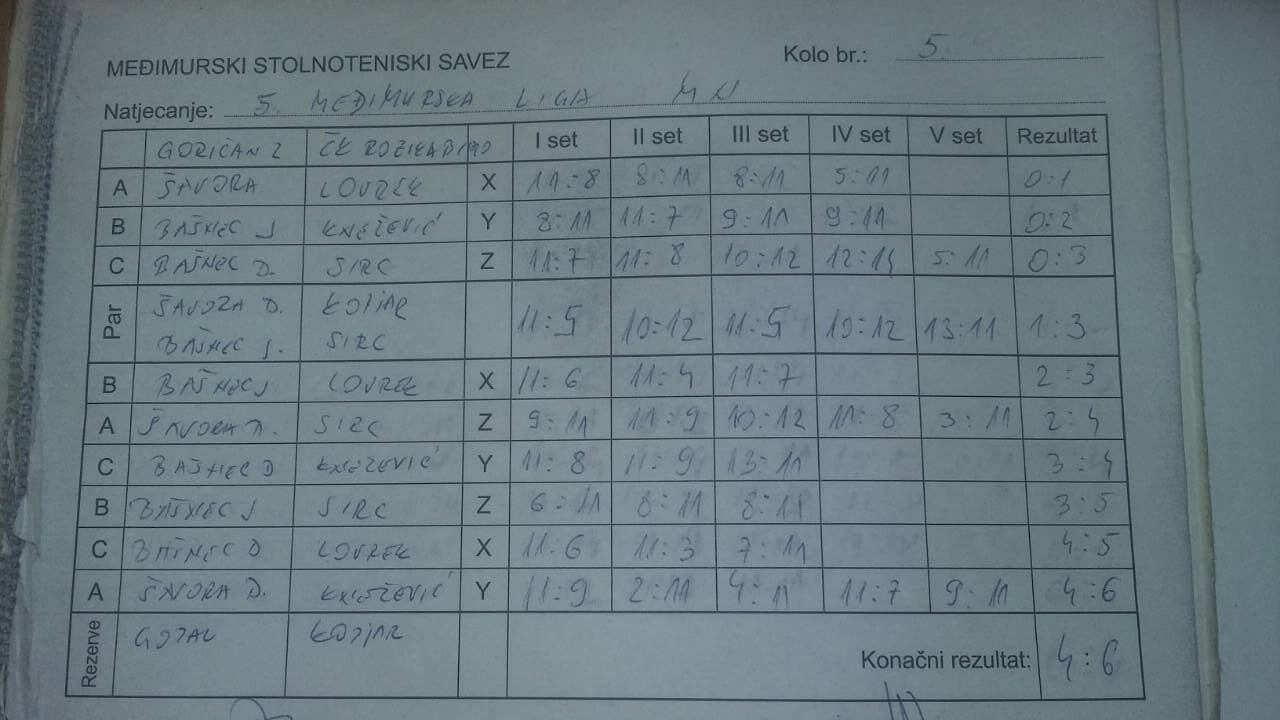 MEĐIMURSKI STOLNOTENISKI SAVEZ Kolo br.: 5.
Natjecanje: 5. MEĐIMURSKA LIGA MN
GORIČAN 2 ČK I set II set III set IV set V set Rezultat
A ŠAVORA LOVREK X 11:8 8:11 8:11 5:11 0:1
B BAŠNEC J KNEŽEVIĆ Y 8:11 11:7 9:11 9:11 0:2
C BAŠNEC D. SIRC Z 11:7 11:8 10:12 12:14 5:11 0:3
Par ŠAVORA D. KOTJAR 11:5 10:12 11:5 10:12 13:11 1:3
BAŠNEC J. SIRC
B BAŠNEC J LOVREK X 11:6 11:4 11:7 2:3
A ŠAVORA D. SIRC Z 9:11 11:9 10:12 11:8 3:11 2:4
C BAŠNEC D KNEŽEVIĆ Y 11:8 11:9 13:11 3:4
B BAŠNEC J SIRC Z 6:11 8:11 8:11 3:5
C BAŠNEC D LOVREK X 11:6 11:3 7:11 4:5
A ŠAVORA D. KNEŽEVIĆ Y 11:9 2:11 4:11 11:7 9:11 4:6
Rezerve KOTJAR Konačni rezultat: 4:6